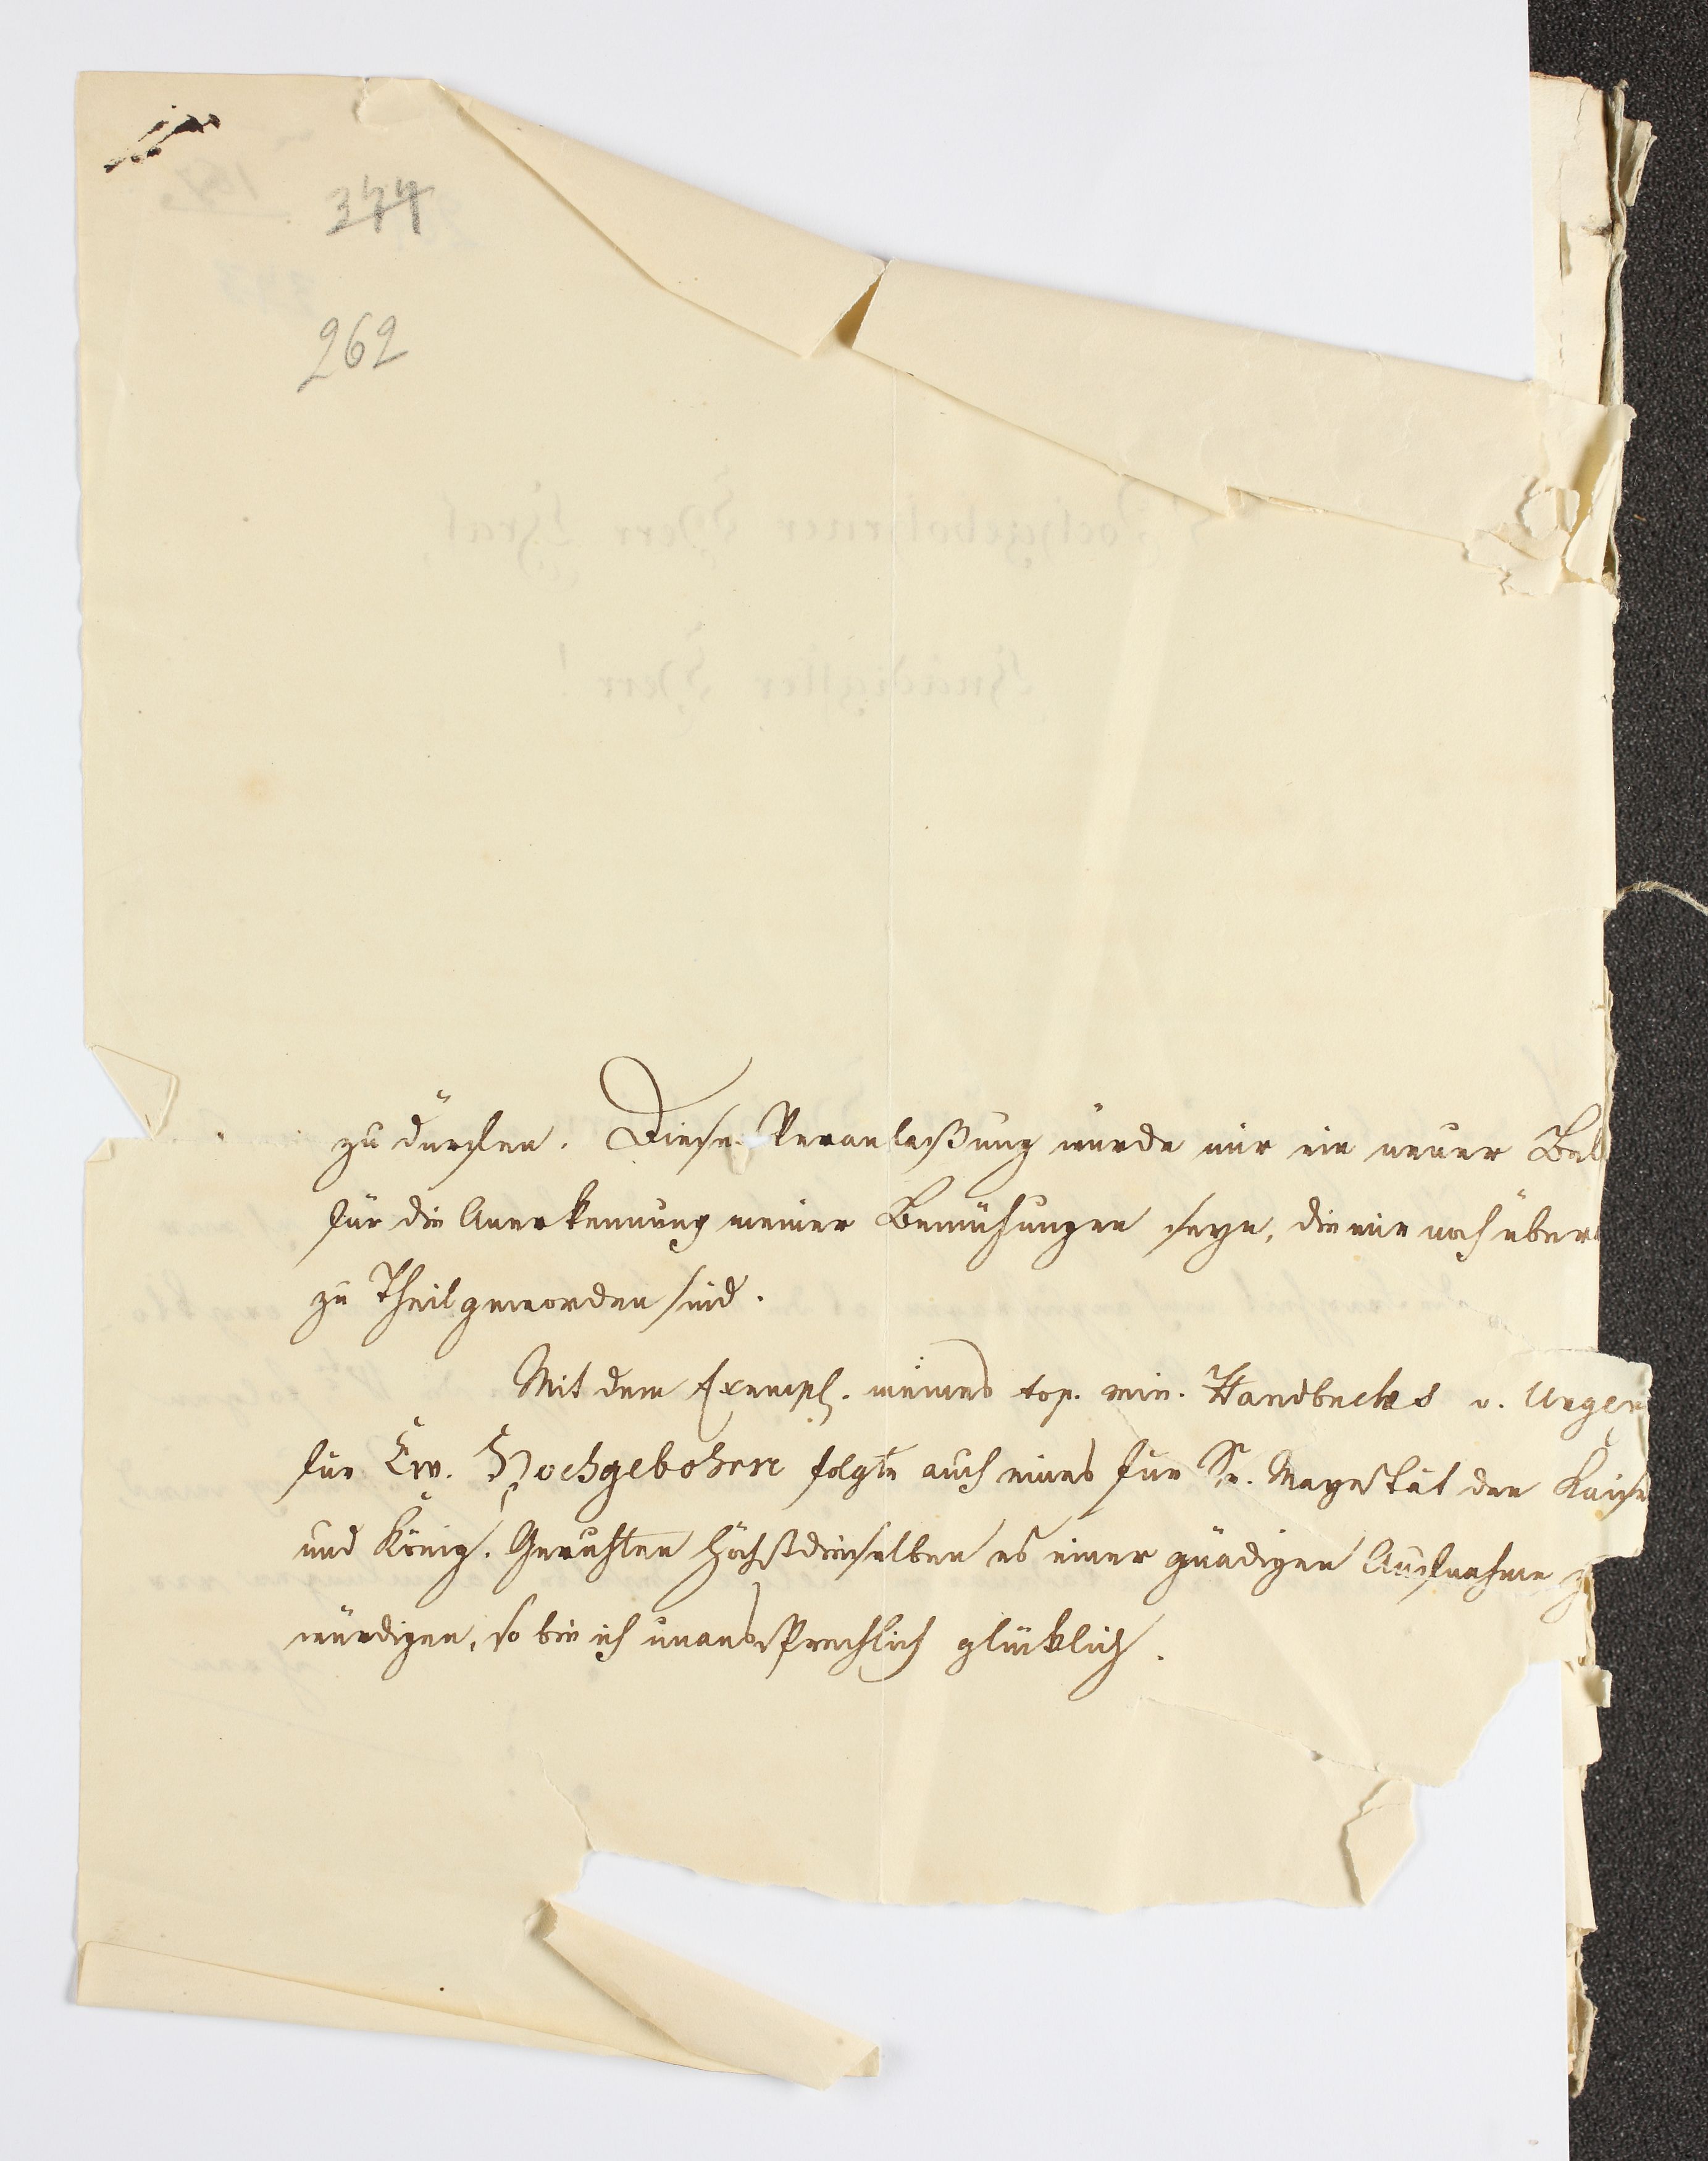 344
262
zu dürfen. Diese Veranlaßung würde mir ein neuer Bel
für die Anerkennung meiner Bemühungen seyn, die mir noch über
zu Theil geworden sind.
Mit dem Exempl. meines top. min. Handbuchs v. Ungern
für Ew. Hochgebohren folgte auch eines für Se. Majestät den Kaiser
und König. Geruhten Höchstdieselben es einer gnädigen Aufnahme z
würdigen, so bin ich unaussprechlich glücklich.